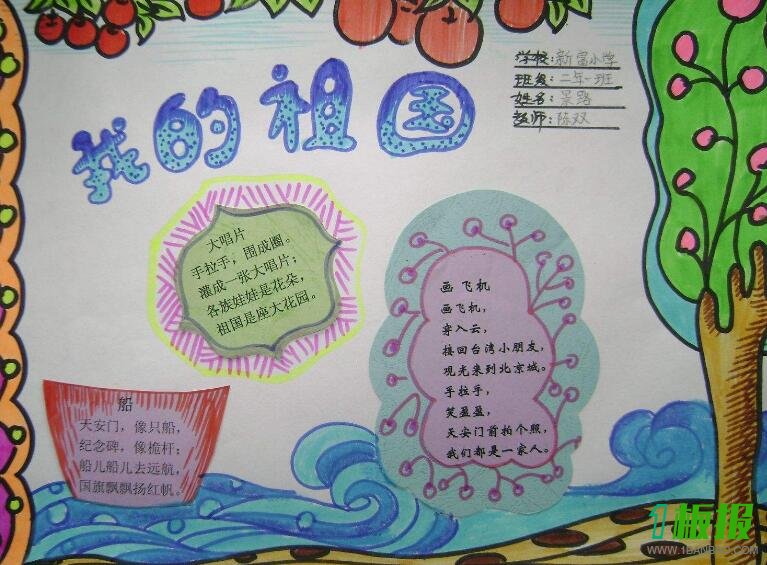 我的祖国
学校:新富小学
班级:二年一班
姓名:景路
教师:陈双
大唱片
手拉手,围成圈。
灌成一张大唱片;
各族娃娃是花朵,
祖国是座大花园。
画飞机
画飞机,
穿入云,
接回台湾小朋友,
观光来到北京城。
手拉手,
笑盈盈,
天安门首拍个照,
我们都是一家人。
船
天安门,像只船,
纪念碑,像桅杆;
船儿船儿去远航,
国旗飘飘扬红帆。
1板报
WWW.1BANBAO.COM